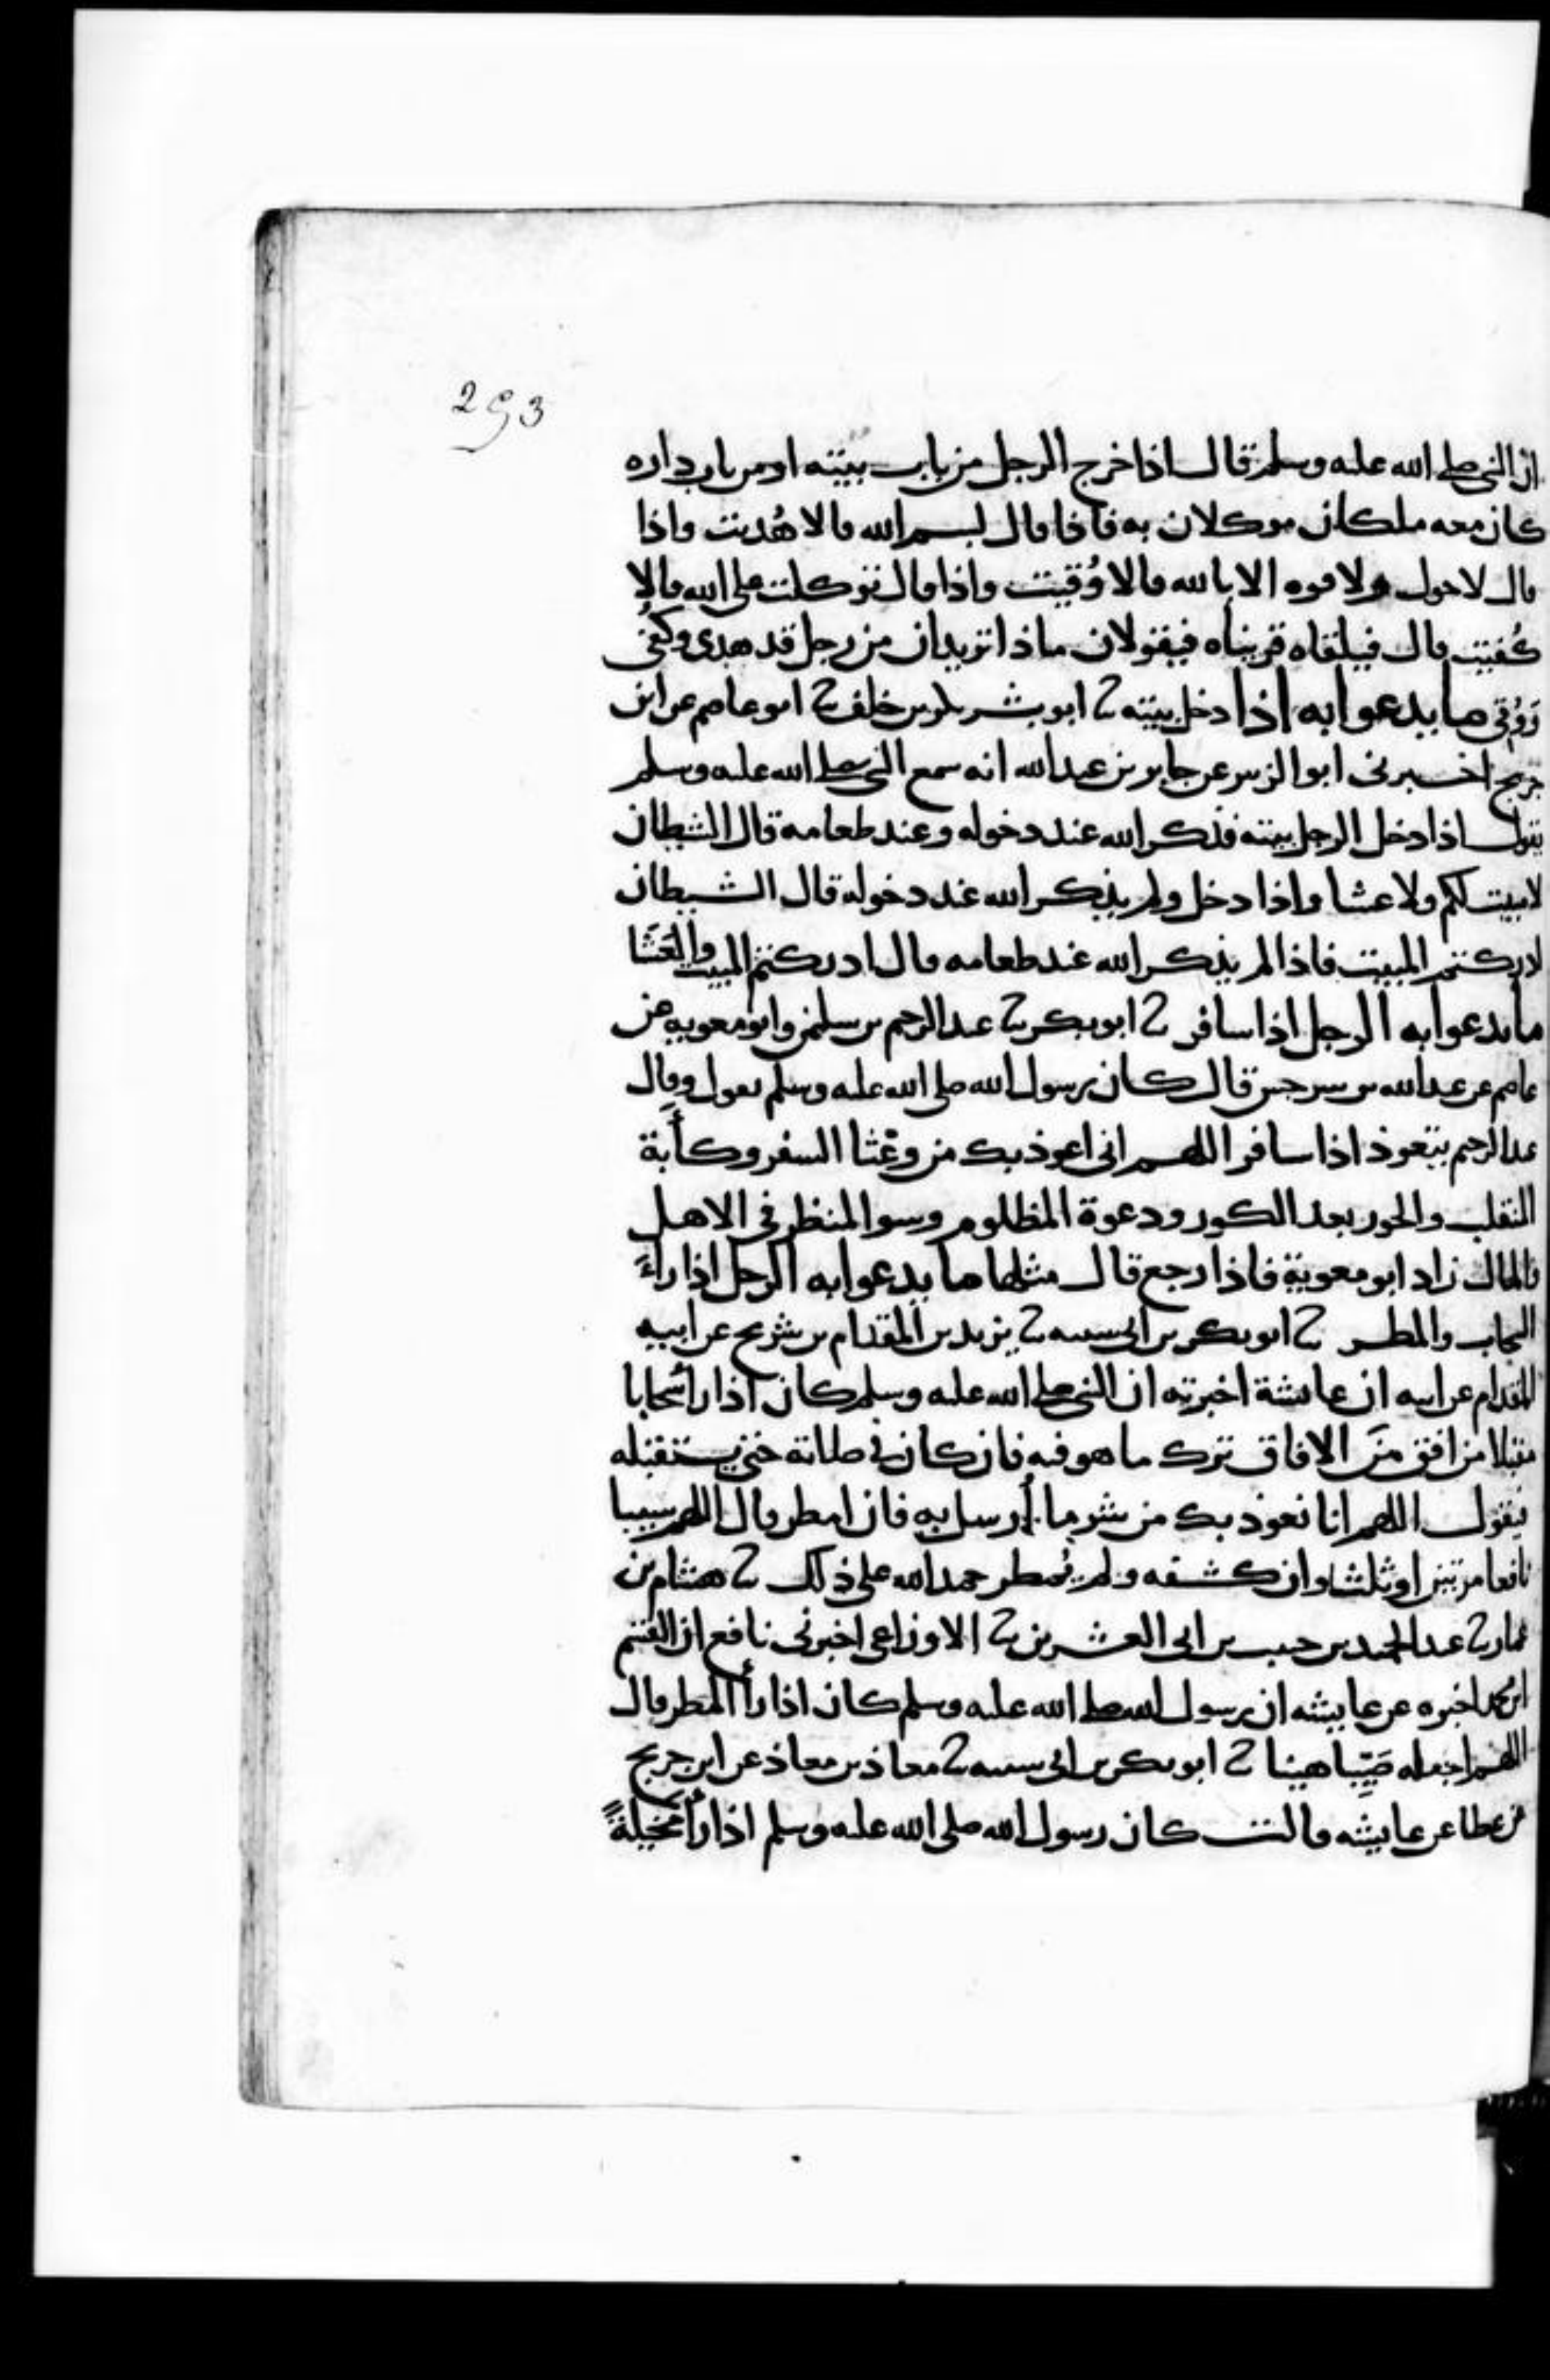 293
ان النبي صلى الله عليه وسلم قال اذا خرج الرجل من باب بيته او من باب داره
كان معه ملكان موكلان به فاذا قال بسم الله قالا هُديت واذا
قال لا حول ولا قوه الا بالله قالا وُقيت واذا قال توكلت على الله قالا
كُفيت قال فيلقاه قريناه فيقولان ماذا تريدان من رجل قد هدى وكُفى
وَوُقى ما يدعوا به اذا دخل بيته ثنا ابو بشر بكر بن خلف ثنا ابو عاصم عن ابن
جريج اخبرنى ابو الزبير عن جابر بن عبد الله انه سمع النبي صلى الله عليه وسلم
يقول اذا دخل الرجل بيته فذكر الله عند دخوله وعند طعامه قال الشيطان
لا مبيت لكم ولا عشا واذا دخل ولم يذكر الله عند دخوله قال الشيطان
ادركتم المبيت فاذا لم يذكر الله عند طعامه قال ادركتم المبيت والعَشَا
ما يدعوا به الرجل اذا سافر ثنا ابو بكر ثنا عبد الرحيم بن سليمن وابو معويه عن
عاصم عن عبد الله بن سرجس قال كان رسول الله صلى الله عليه وسلم يقول وقال
عبد الرحيم يتعوذ اذا سافر اللهم انى اعوذ بك من وعْثا السفر وكأبة
المنقلب والحور بعد الكور ودعوة المظلوم وسو المنظر في الاهل
والمال زاد ابو معوية فاذا رجع قال مثلها ما يدعوا به الرجل اذا راءَ
السحاب والمطر ثنا ابو بكر بن ابى شيبه ثنا يزيد بن المقدام بن شريح عن ابيه
المقدام عن ابيه ان عائشة اخبرته ان النبي صلى الله عليه وسلم كان اذا رأ سحابا
مقبلا من افق منَ الافاق ترك ما هو فيه فان كان في صلاته حتى يستقبله
فيقول اللهم انا نعوذ بك من شر ما أُرسل به فان امطر قال اللهم سيبا
نافعا مرتين او ثلثا وان كشفه ولم يُمطر حمد الله على ذلك ثنا هشام بن
عمار ثنا عبد الحميد بن حبيب بن ابى العشرين ثنا الاوزاعى اخبرنى نافع ان القسم
ابن محمد اخبره عن عايشه ان رسول الله صلى الله عليه وسلم كان اذا رأ المطر قال
اللهم اجعله صَيّبا هنيا ثنا ابو بكر بن ابى شيبه ثنا معاذ بن معاذ عن ابن جريج
عن عطا عن عايشه قالت كان رسول الله صلى الله عليه وسلم اذا رأ مخيلةً